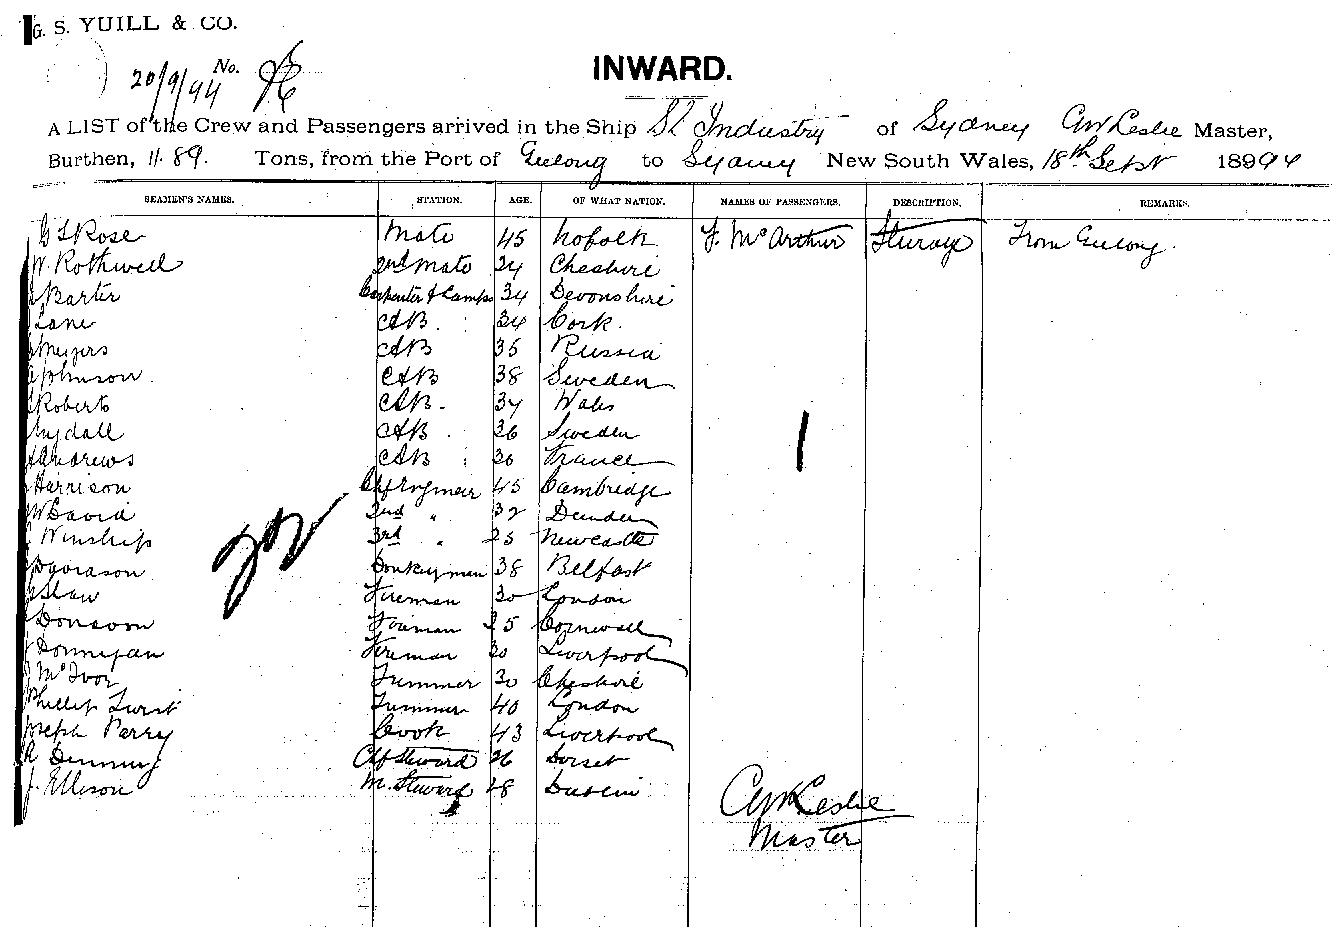 G. S. YUILL & CO.
20/9/94 No.
INWARD.
A LIST of the Crew and Passengers arrived in the Ship SS Industry of Sydney GW Leslie Master,
Burthen, 1189. Tons, from the Port of Geelong to Sydney New South Wales, 18th Sept 18994
SEAMEN'S NAMES. STATION. AGE. OF WHAT NATION. NAMES OF PASSENGERS. DESCRIPTION. REMARKS.
Rose Mate 45 Nofolk F. McArthur Sturage From Geelong.
W. Rothwell 2nd Mate 24 Cheshire
Barter Carpenter & Lamps 34 Devonshire
Lane AB. 24 Cork.
Meyers AB 35 Russia
Johnson. AB 38 Sweden
Roberts AB. 34 Wales
Lydall AB. 26 Sweden
Andrews AB 30 France
Harrison 45 Cambredge
W David 2nd " 32 Dundee
Winship 3rd " 25 Newcastle
Donkeyman 38 Belfast
Shaw Fireman 30 London
Fireman 25 Cornwall
Donnigan Fireman 30 Liverpool
McIvor Trimmer 30 Cheshire
Phillip Trimmer 40 London
Joseph Perry Cook 43 Liverpool
Denning Chf Steward 26 Dorset
J. Ellison M. Steward 28 Dublin
GW Leslie
Master